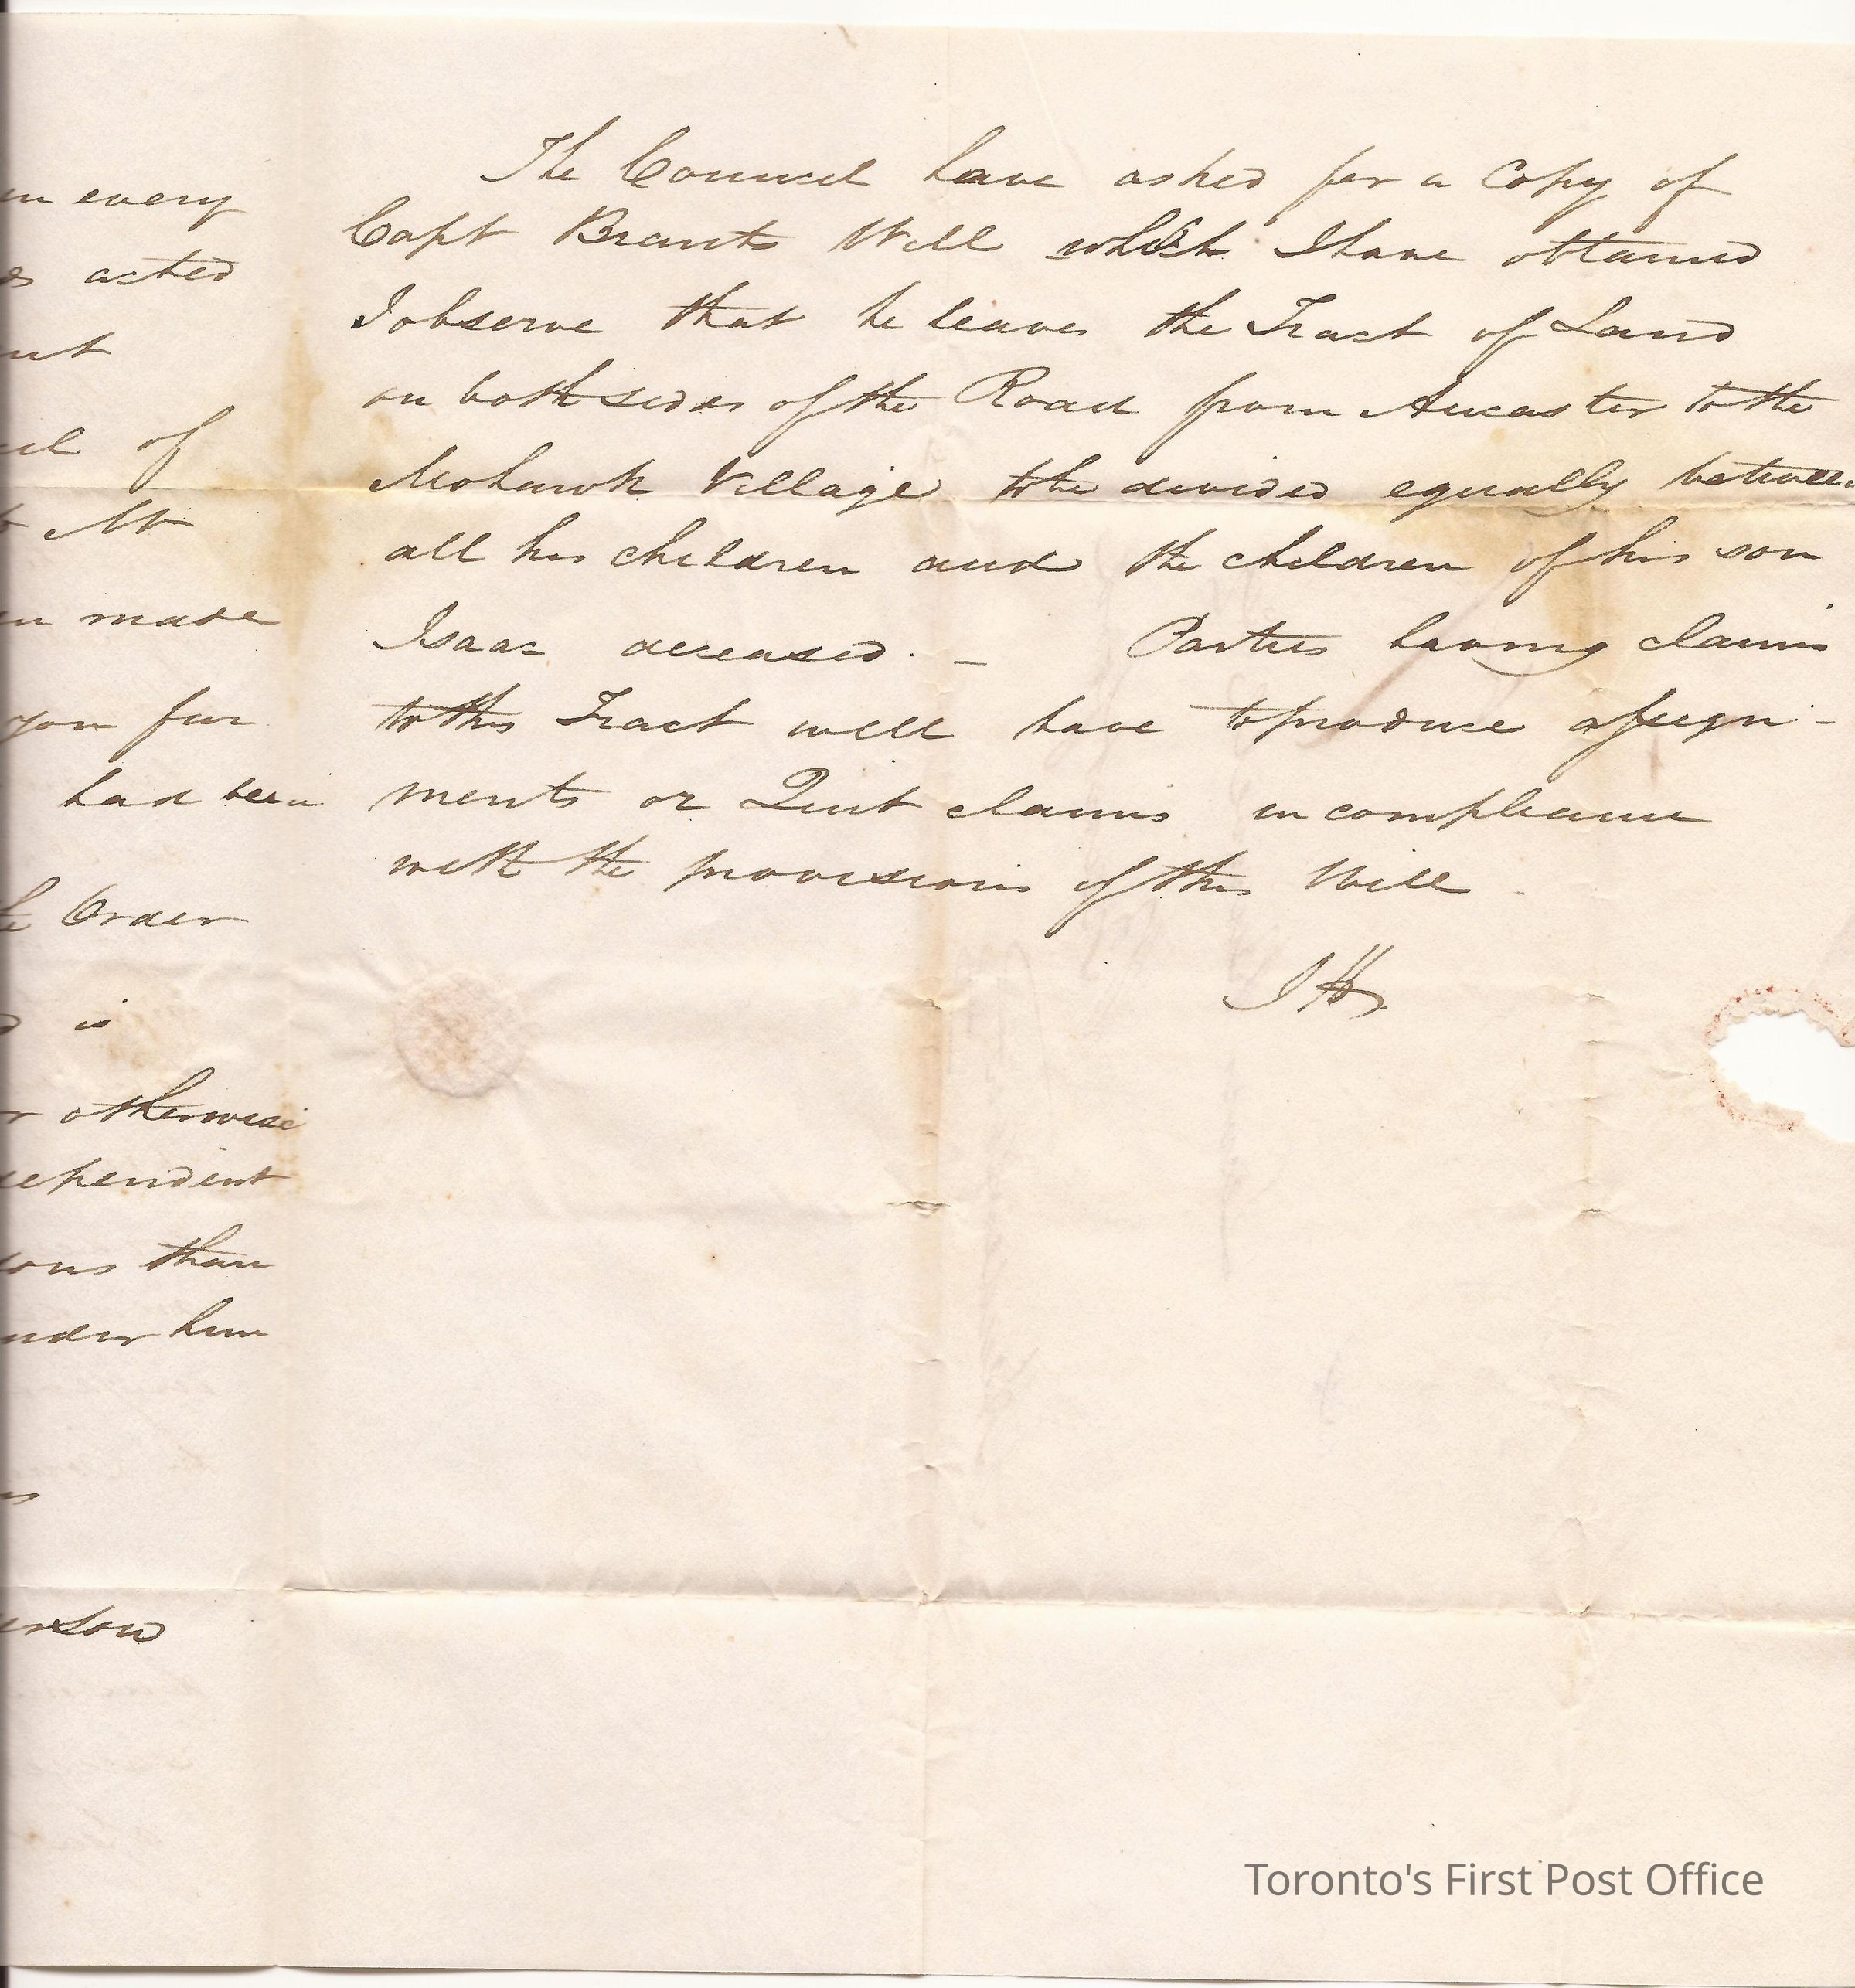 in every
acted
of
Mr
made
you for
had been
Order
is
otherwise
dependent
than
under him
The Council have asked for a Copy of
Capt Brants Will which I have obtained
I observe that he leaves the Tract of Land
on both sides of the Road from Ancaster to the
Mohawk Village to be divided equally between
all his children and the children of his son
Isaac deceased. – Parties having claims
to this Tract will have to produce assign-
ments or Quit claims in compliance
with the provisions of this Will
JW
Toronto's First Post Office